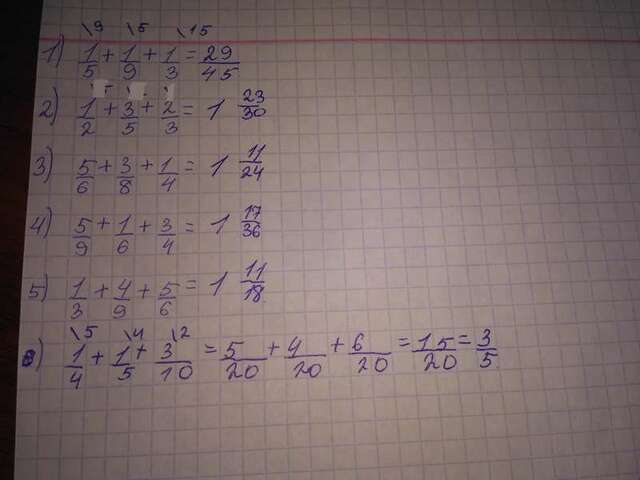 \9 \5 \15
1) 1/5 + 1/9 + 1/3 = 29/45
2) 1/2 + 3/5 + 2/3 = 1 23/30
3) 5/6 + 3/8 + 1/4 = 1 11/24
4) 5/9 + 1/6 + 3/4 = 1 17/36
5) 1/3 + 4/9 + 5/6 = 1 11/18
\5 \4 \2
6) 1/4 + 1/5 + 3/10 = 5/20 + 4/20 + 6/20 = 15/20 = 3/5